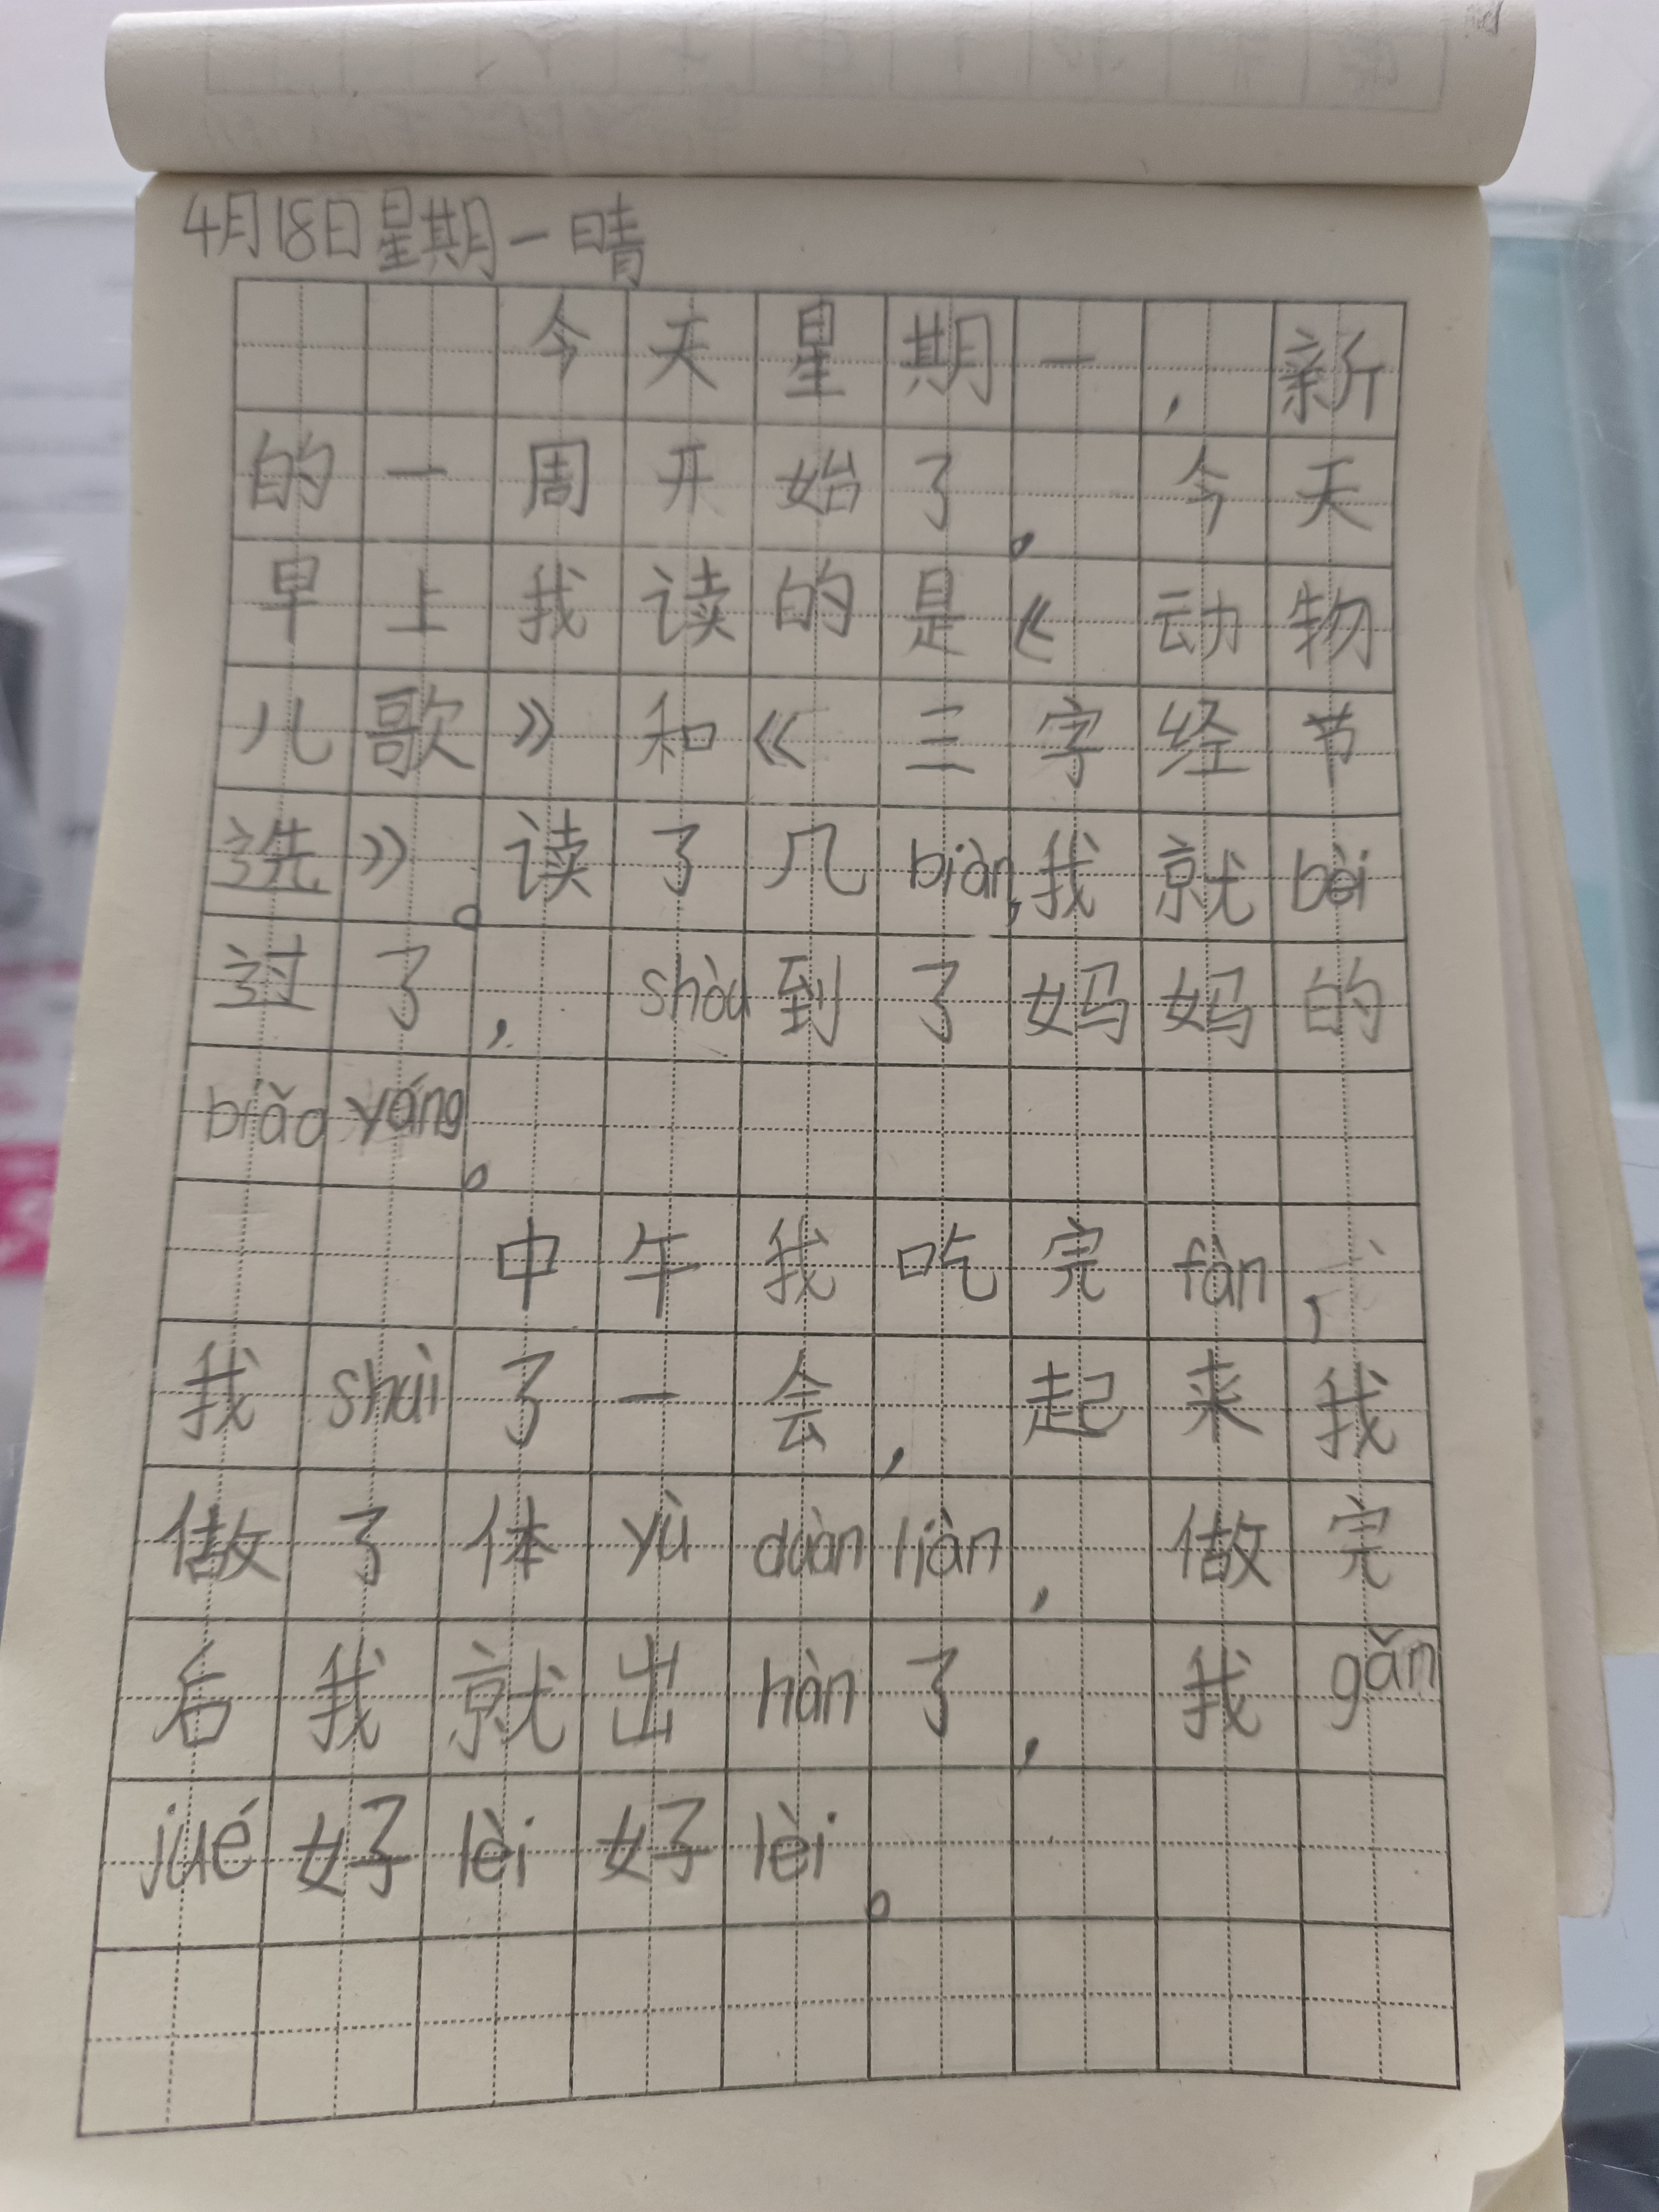 4月18日星期一晴
今天星期一，新
的一周开始了。今天
早上我读的是《动物
儿歌》和《三字经节
选》。读了几biàn，我就bèi
过了，shòu到了妈妈的
biǎo yáng。
中午我吃完fàn，
我shuì了一会，起来我
做了体yù duàn liàn，做完
后我就出hàn了，我gǎn
jué好lèi好lèi。